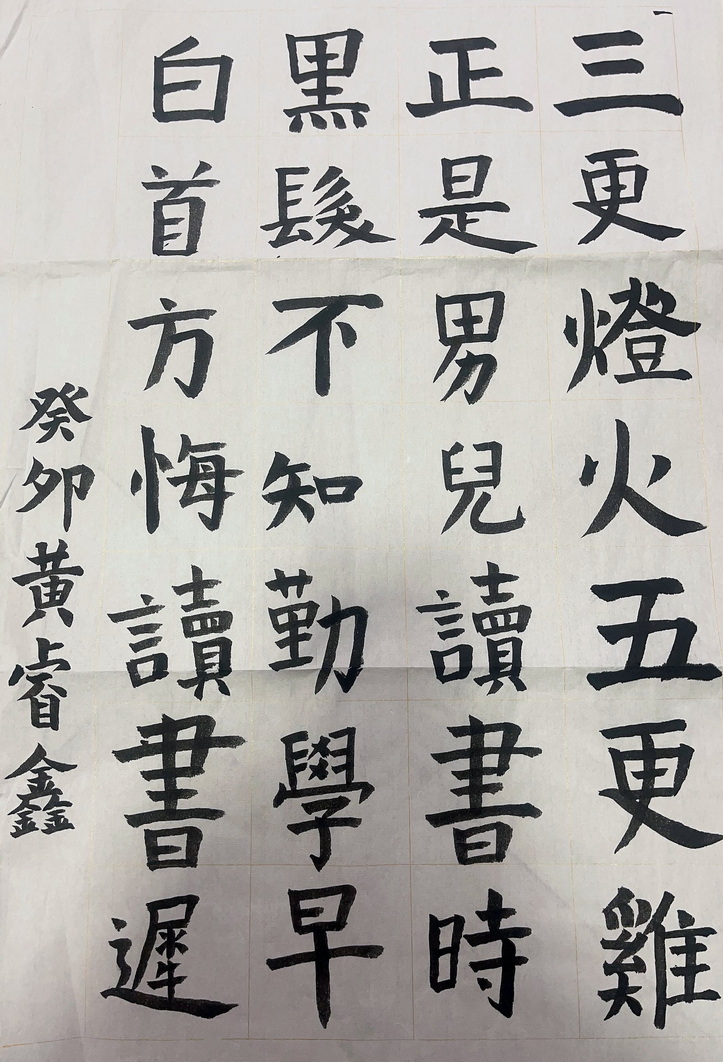 三更燈火五更雞
正是男兒讀書時
黑髮不知勤學早
白首方悔讀書遲
癸卯黃睿鑫